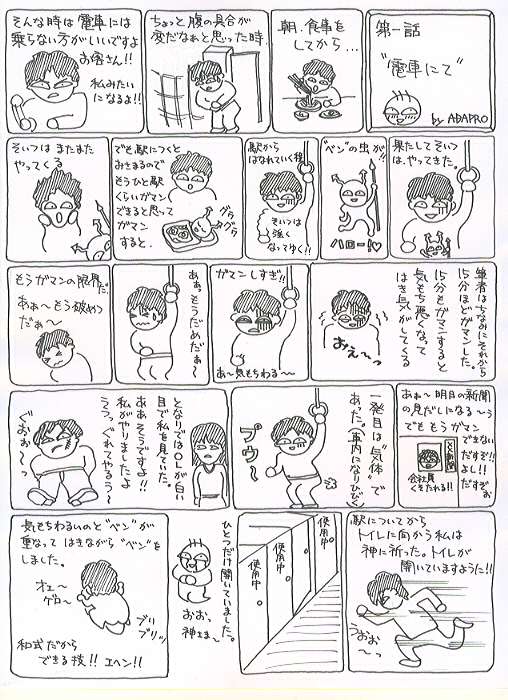 第一話
"電車にて"
by ADAPRO
朝、食事を
してから…
ちょっと腹の具合が
変だなぁと思った時、
そんな時は電車には
乗らない方がいいですよ
お客さん!!
私みたい
になるよ!!
果たしてそいつ
は、やってきた。
"ベン"の虫が!!
ハロー!♡
駅から
はなれていく程
そいつは
強く
なってゆく!!
でも駅につくと
おさまるので
もうひと駅
くらいガマン
できると思って
ガマン
すると、
グタ
グタ
そいつは またまた
やってくる
筆者はちなみにそれから
15分ほどガマンした。
15分もガマンすると
気もち悪くなって
はき気がでてくる
おえ〜っ
ガマンしすぎ!!
あ〜気もちわる〜
ああ、もうだめだぁ〜
もうガマンの限界だ。
ああ〜もう破れつ
だぁ〜
あぁ〜明日の新聞
の見だしになる〜う
でももうガマン
できない
だすぞ!!
よし!!
だすぞぉ
××新聞
会社員
くそたれる!!
一発目は"気体"で
あった。(車内になりひびく)
プゥ〜
となりではOLが白い
目で私を見ていた。
ああそうですよ!!
私がやりましたよ
うぅっ、ぐれてやるぅ〜
ぐおぉ〜っ
駅についてから
トイレに向かう私は
神に祈った。トイレが
開いていますように!!
うおぉ〜っ
使用中
使用中
使用中
ひとつだけ開いていました。
おおっ
神さま〜
気もちわるいのと"ベン"が
重なって はきながら"ベン"を
しました。
オェ〜
ゲロ〜
ブリ
ブリッ
和式だから
できる技!!エヘン!!